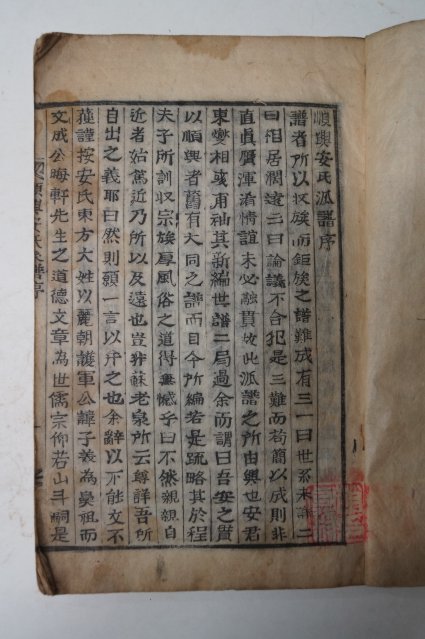 順興安氏派譜序
譜者所以收族而鉅族之譜難成有三一曰世系未詳二
曰相居濶遠三曰論議不合犯是三難而苟簡以成則非
直眞贋渾淆情誼未必融貫故此派譜之所由興也安君
東燮相奭甫袖其新編世譜二局過余而謂曰吾安之貫
以順興者舊有大同之譜而目今所編若是疏略其於程
夫子所訓収宗族厚風俗之道得無憾乎曰不然親親自
近者始篤近乃所以及遠也豈非蘇老泉所云尊詳吾所
自出之義耶曰然則願一言以序之也余辭以不能文不
獲謹按安氏東方大姓以麗朝護軍公諱子義爲鼻祖而
文成公晦軒先生之道德文章為世儒宗仰若山斗嗣是
順興安氏派譜序